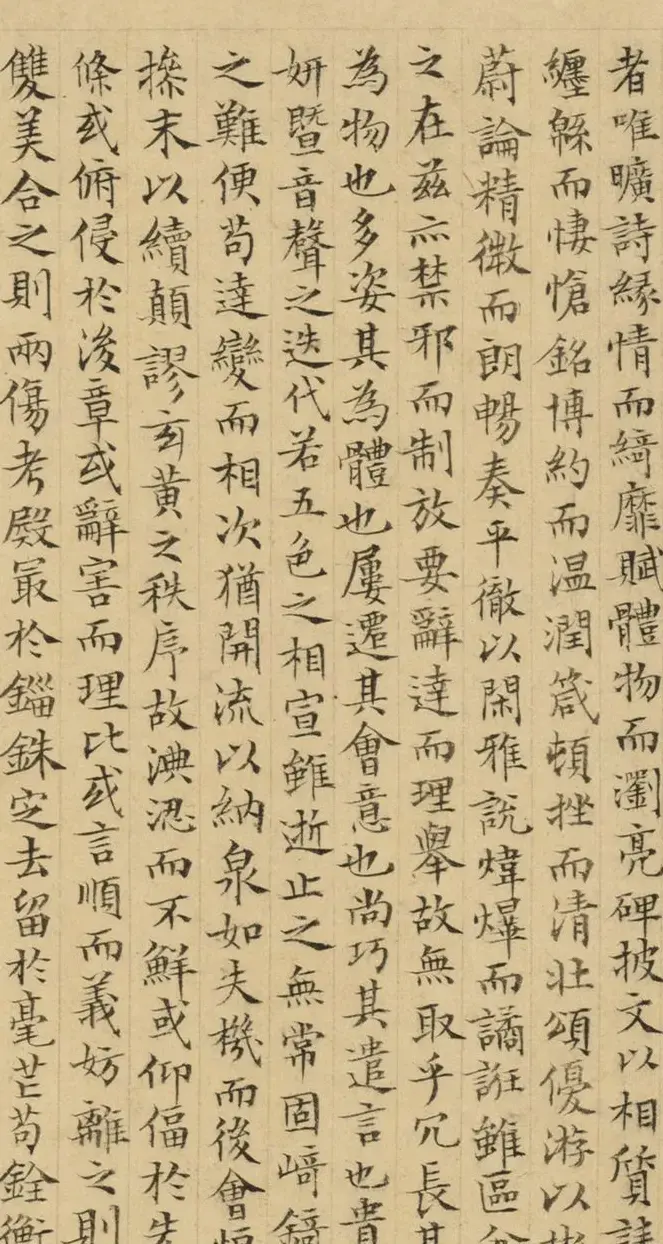 者唯曠詩緣情而綺靡賦體物而瀏亮碑披文以相質誄
纏緜而悽愴銘博約而温潤箴頓挫而清壯頌優游以彬
蔚論精微而朗暢奏平徹以閑雅說煒燁而譎誑雖區分
之在茲亦禁邪而制放要辭達而理舉故無取乎冗長其
為物也多姿其為體也屢遷其會意也尚巧其遣言也貴
妍暨音聲之迭代若五色之相宣雖逝止之無常固﨑錡
之難便苟達變而相次猶開流以納泉如失機而後會恒
操末以續顛謬玄黃之秩序故淟涊而不鮮或仰偪於先
條或俯侵於後章或辭害而理比或言順而義妨離之則
雙美合之則兩傷考殿最於錙銖定去留於毫芒苟銓衡